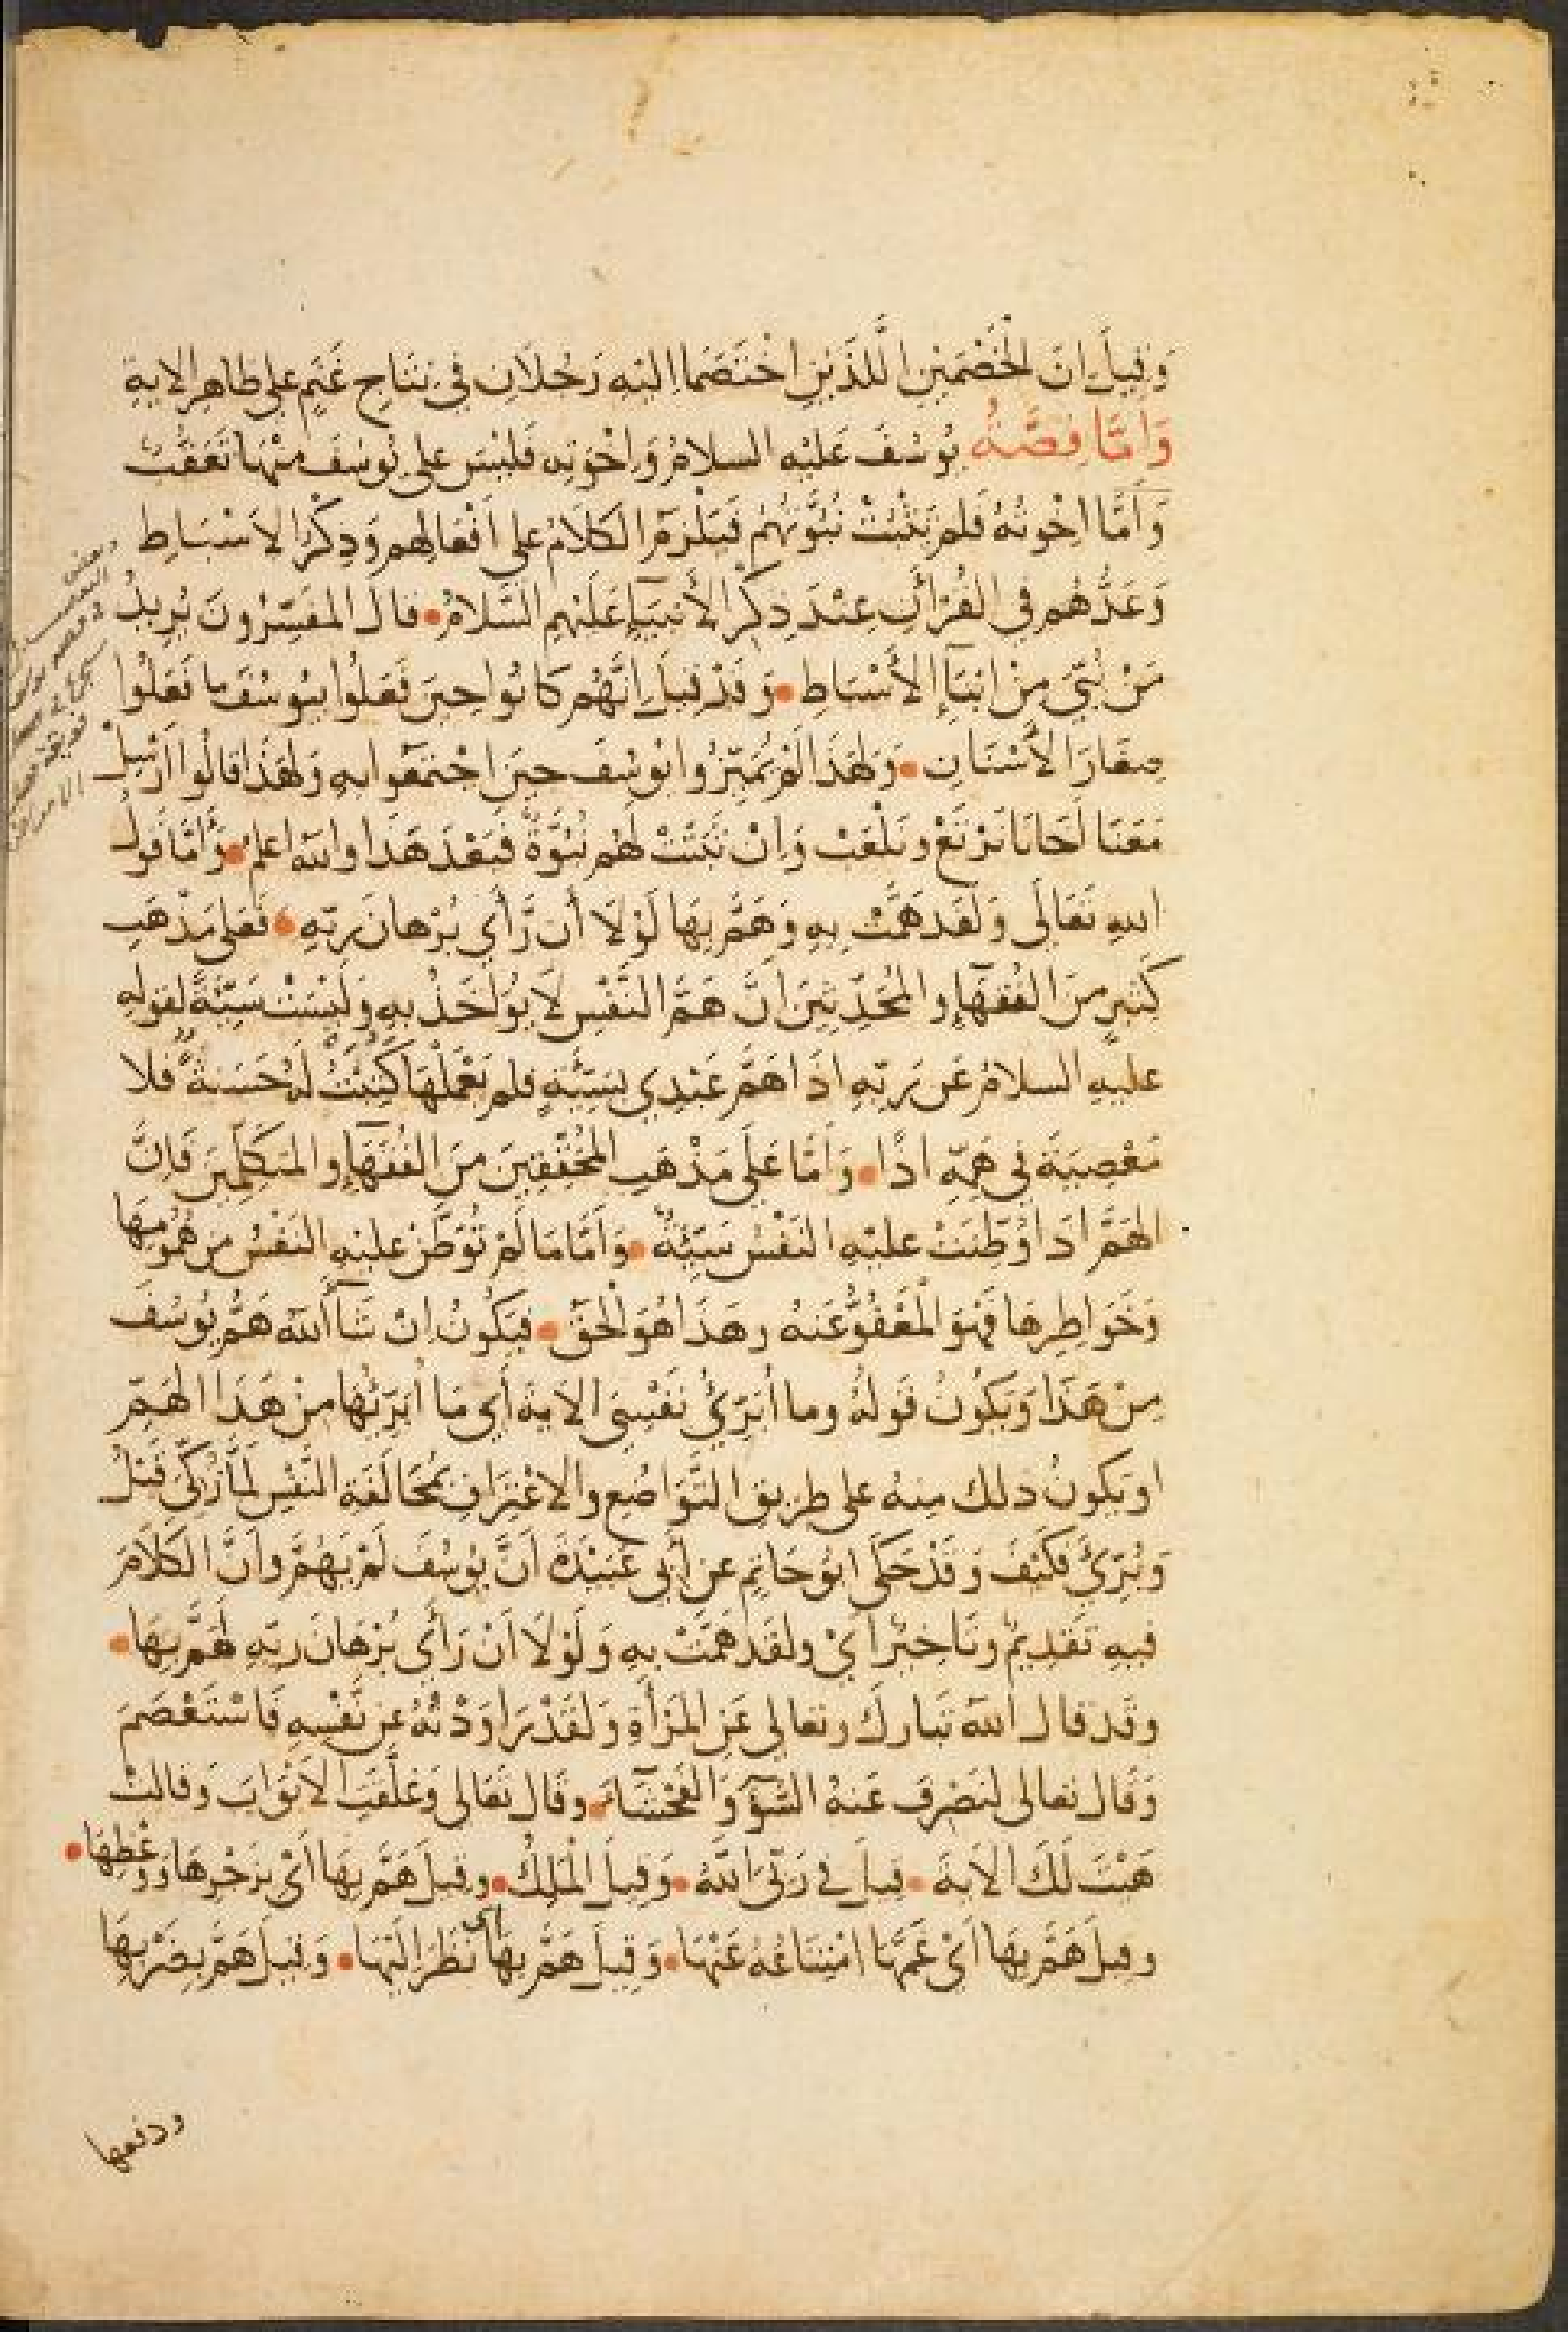 وَقِيلَ اِنَ الخَصْمَيْنِ اللَّذَيْنِ اخْتَصَما اِلَيْهِ رَجُلَانِ في نتَاجِ غَنَمٍ على ظاهر الاية
وَامَّا قِصَّةُ يُوسُفَ عَلَيْهِ السلامُ وَاِخْوَتِهِ فَلَيْسَ على يُوسُفَ منْهَا تَعَقُّبٌ
وَاَمَّا اِخْوتُهُ فَلم تَثْبُتْ نُبُوَّتُهُمْ فَيَلْزَمَ الكَلَامُ على اَفْعَالِهم وَذِكْرُ الاَسْبَاطِ
وَعَدُّهُم في القُرْآنِ عِنْدَ ذِكْرِ الأَنبيَآءِ عَلَيْهِم السَّلامُ • قال المفَسِّرُونَ يُرِيدُ
مَنْ نُبِّيَ مِنْ ابْنَآءِ الأَسْبَاطِ • وَقَدْ قِيلَ اِنَّهُم كَانُوا حِينَ فَعَلُوا بيُوسُفَ ما فَعَلُوا
صِغَارَ الأَسْنَانِ • وَلهَذَا لَمْ يُمَيِّزُوا يُوسُفَ حينَ اجْتَمَعُوا بهِ وَلهَذَا قَالُوا اَرْسِلْ
مَعَنَا اَخَانَا نَرْتَعْ وَنَلْعَبْ وَاِنْ ثَبَتَتْ لَهُمْ نُبُوَّةٌ فَبَعْدَ هَذَا والله اعلم • وَاَمَّا قَولُ
اللهِ تَعَالَى وَلَقَد هَمَّتْ بِهِ وَهَمَّ بِهَا لَوْلَا أَن رَّأَي بُرْهَانَ رَبِّهِ • فَعَلى مَذْهَبِ
كَثيرٍ منَ الفُقهَآءِ والمُحَدِّثِينَ اَنَّ هَمَّ النَّفْسِ لاَ يُوَاخَذُ بهِ وَلَيْسَتْ سَيِّئَةً لقوله
عليهِ السلامُ عَن رَبِّهِ اذَا هَمَّ عَبْدِي بسَيِّئَةٍ فلم يَعْمَلْهَا كُتِبَتْ لَهُ حَسَنةٌ فلا
مَعْصِيَةَ في هَمِّهِ اذًا • وَاَمَّا عَلَى مَذْهَبِ المُحَقِّقِينَ منَ الفُقَهَآءِ والمتكَلِّمينَ فَاِنَّ
الهَمَّ اذَا وُطِّنَتْ عليْهِ النَفْسُ سَيِّئَةٌ • وَاَمَّا مَا لَمْ تُوَطَّنْ عليْهِ النَفْسُ من هُمُومِهَا
وَخَوَاطِرِهَا فَهُوَ المَعْفُوُّ عَنهُ وهَذَا هُوَ الحَقُّ • فَيَكُونُ اِنْ شَآءَ اللهُ هَمُّ يُوسُفَ
مِنْ هَذَا وَيَكُونُ قَولُهُ وما اُبَرِّئُ نَفْسِي الايةَ أي مَا اُبَرِّئُهَا منْ هَذَا الهَمِّ
او يَكونُ ذلك مِنهُ على طريقِ التَّوَاضُعِ والاعْتِرَافِ بمُخَالَفَةِ النَّفْسِ لمَا زُكِّيَ قَبْلُ
وَبُرِّئَ فَكَيْفَ وَقَدْ حَكَى ابُو حَاتِمٍ عن اَبِي عُبَيْدَةَ اَنَّ يُوسُفَ لَمْ يَهُمَّ واَنَّ الكَلَامَ
فيهِ تَقدِيمٌ وتَاخيرٌ اَيْ ولقَد هَمَّتْ بهِ وَلَوْلَا اَنْ رَأَي بُرْهَانَ ربِّهِ لَهَمَّ بِهَا •
وقَد قال اللهُ تَبارَكَ وتعالى عَنِ المَرْأَةِ وَلَقَدْ رَاوَدْتُهُ عن نَّفْسِهِ فَاسْتَعْصَمَ
وَقَال تعالى لنَصْرِفَ عَنهُ السُّوٓءَ وَالفَحْشَآءَ • وقَال تَعَالى وَغلَّقَتِ الاَبْوَابَ وَقالتْ
هَيْتَ لَكَ الايَةَ • قيلَ في رَبِّيَ اللهُ • وَقِيلَ المَلِكُ • وقيلَ هَمَّ بِهَا اَيْ بزَجْرِهَا وَوَعْظِهَا •
وقيلَ هَمَّ بِهَا اَيْ غَمَّهَا امْتِنَاعُهُ عَنْهَا • وَقِيلَ هَمَّ بِهَا اي نَظَرَ اِلَيْهَا • وَقيلَ هَمَّ بِضَرْبِهَا
ودفعها